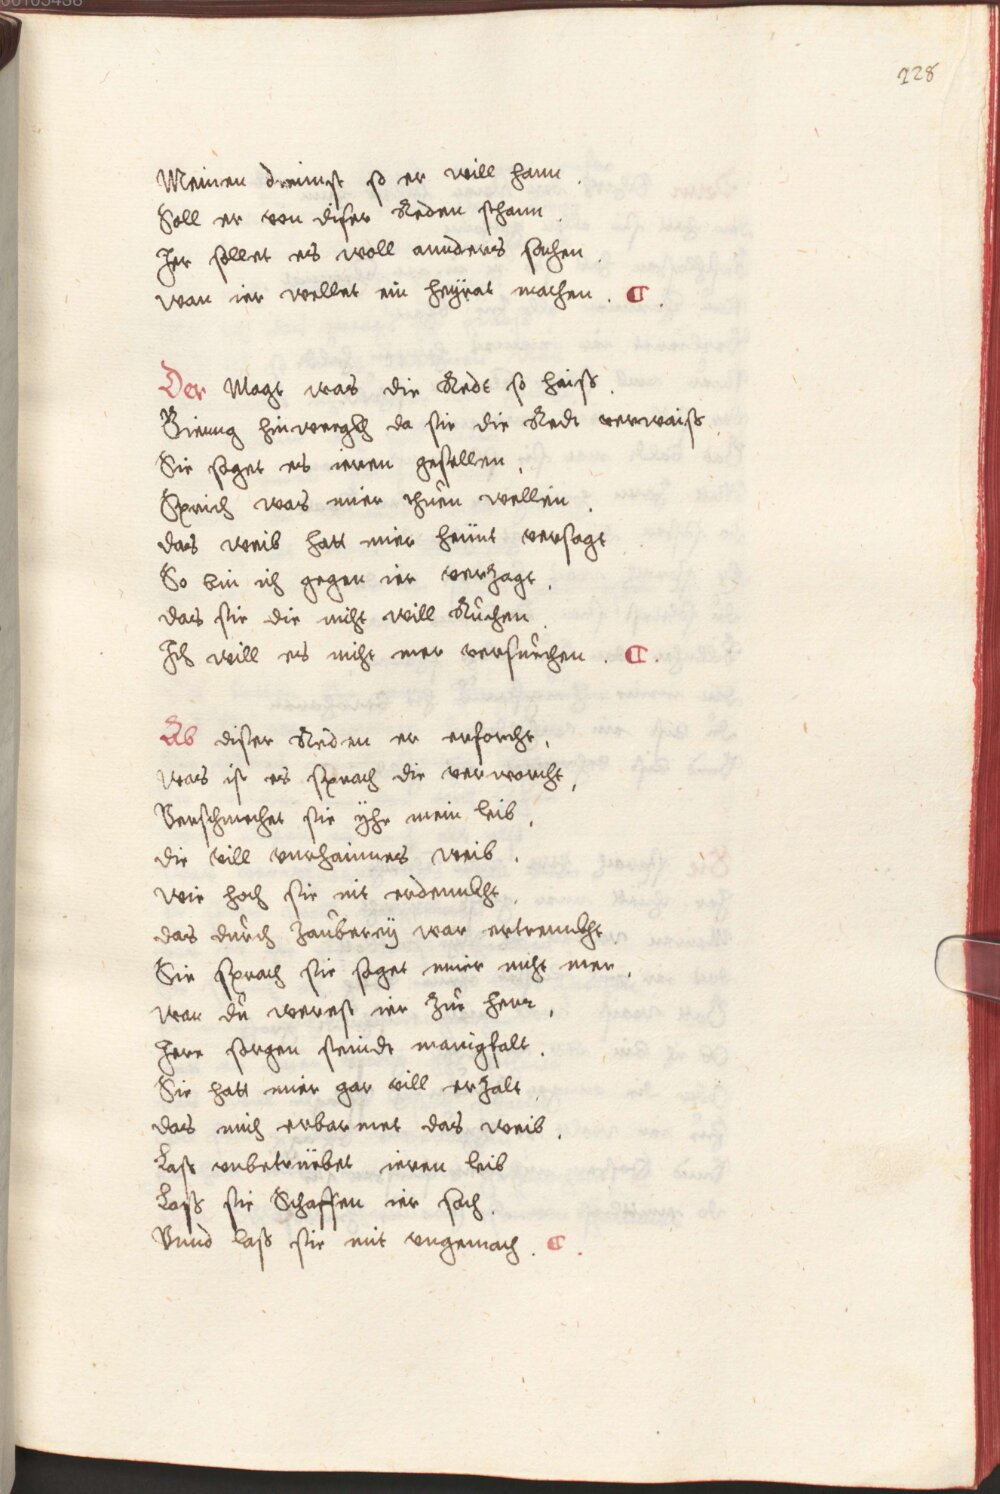 228
Meinen dreimst so er will hann .
Soll er von diser Reden schann .
Jer sollet es woll annders sachen .
wan ier wellet ein heÿrat machen . C .
Der Magt was die Redt so haiß .
Gieng hinwergkh da sie die Redt verwaiß .
Sie saget es ieren gesellen .
Sprich was mier thuen wellen .
das weib hatt mier heünt versagt
So bin ich gegen ier verzagt .
das sie die nicht will Ruchen .
Ich will es nicht mer versuechen . C .
Ab diser Reden er erforcht,
was ist es sprach die verworcht,
Verschmechet sie ÿhr mein leib .
die vill vnrhaimes weib .
wie hoch sie nit erdennkht .
das durch zauberey war ertrennkht
Sie sprach sie saget mier nicht mer .
wan du werest ier zue herr,
Jere sorgen seindt manigfalt .
Sie hatt mier gar vill erzalt
das mich erbarmet das weib .
Laß vnbetrüebet ieren leib
Laß sie Schaffen ier sach .
Vnnd laß sie mit vngemach . C .